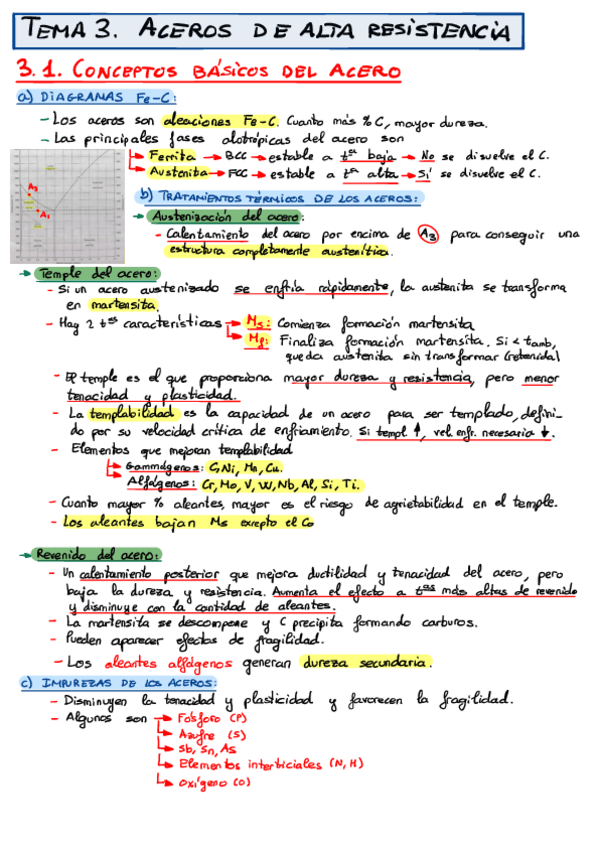 TEMA 3. ACEROS DE ALTA RESISTENCIA
3.1. CONCEPTOS BÁSICOS DEL ACERO
a) DIAGRAMAS Fe-C:
- Los aceros son aleaciones Fe-C. Cuanto más % C, mayor dureza.
- Las principales fases alotrópicas del acero son
Ferrita → BCC → estable a tª baja → No se disuelve el C.
Austenita → FCC → estable a tª alta → Sí se disuelve el C.
A3
A1
b) TRATAMIENTOS TÉRMICOS DE LOS ACEROS:
→ Austenización del acero:
- Calentamiento del acero por encima de A3 para conseguir una
estructura completamente austenítica.
→ Temple del acero:
- Si un acero austenizado se enfría rápidamente, la austenita se transforma
en martensita.
- Hay 2 tªs características → Ms: Comienza formación martensita
Mf: Finaliza formación martensita. Si < tamb,
queda austenita sin transformar (retenida)
- El temple es el que proporciona mayor dureza y resistencia, pero menor
tenacidad y plasticidad.
- La templabilidad es la capacidad de un acero para ser templado, defini-
do por su velocidad crítica de enfriamiento. Si templ ↑, vel. enfr. necesaria ↓.
- Elementos que mejoran templabilidad
Gammágenos: C, Ni, Mn, Cu.
Alfágenos: Cr, Mo, V, W, Nb, Al, Si, Ti.
- Cuanto mayor % aleantes, mayor es el riesgo de agrietabilidad en el temple.
- Los aleantes bajan Ms excepto el Co
→ Revenido del acero:
- Un calentamiento posterior que mejora ductilidad y tenacidad del acero, pero
baja la dureza y resistencia. Aumenta el efecto a tªs más altas de revenido
y disminuye con la cantidad de aleantes.
- La martensita se descompone y C precipita formando carburos.
- Pueden aparecer efectos de fragilidad.
- Los aleantes alfágenos generan dureza secundaria.
c) IMPUREZAS DE LOS ACEROS:
- Disminuyen la tenacidad y plasticidad y favorecen la fragilidad.
- Algunos son → Fósforo (P)
Azufre (S)
Sb, Sn, As
Elementos intersticiales (N, H)
Oxígeno (O)